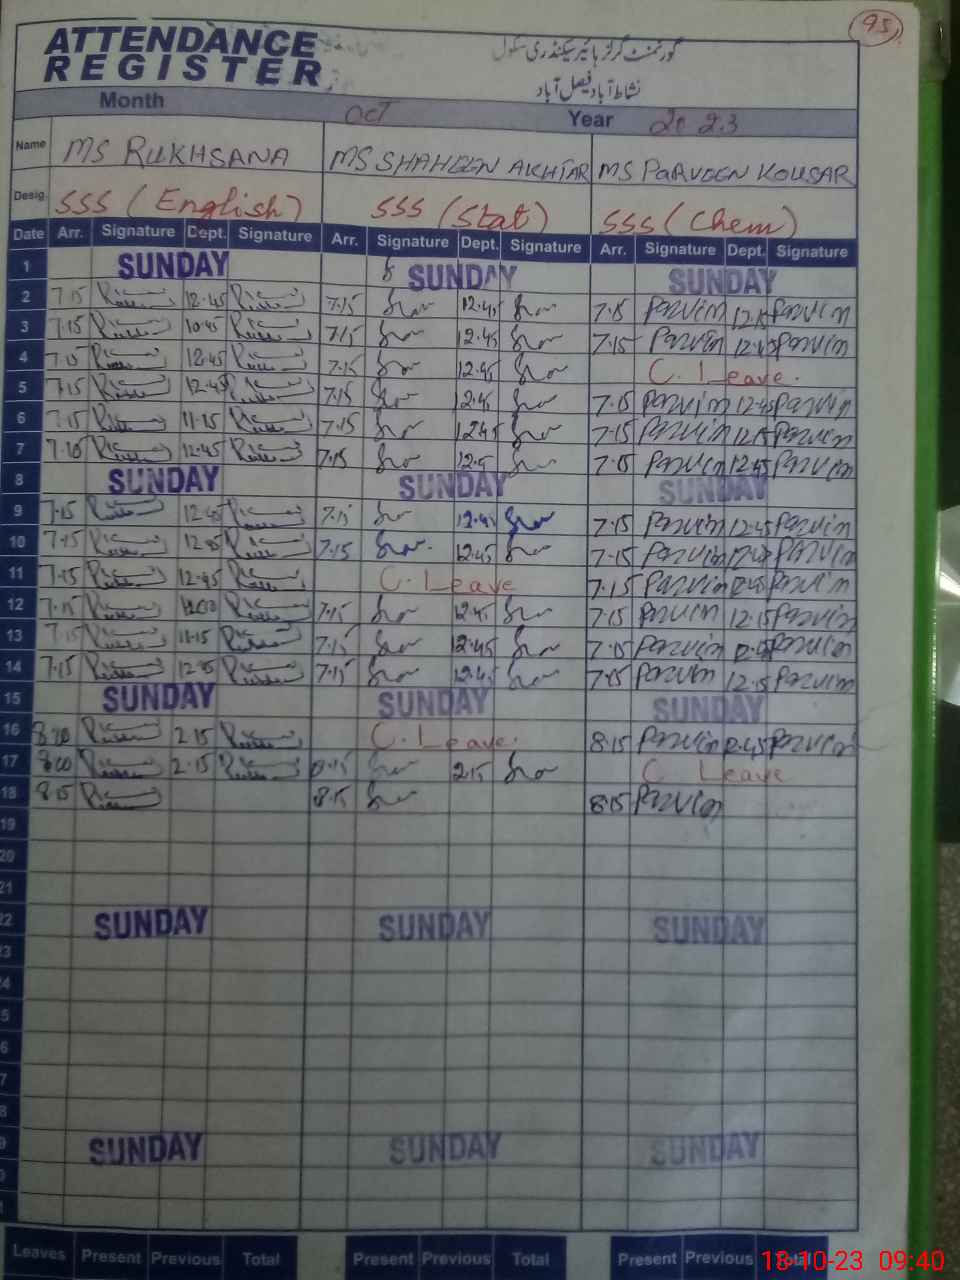 95
ATTENDANCE
REGISTER
گورنمنٹ گرلز ہائیر سیکنڈری سکول
نشاط آباد فیصل آباد
Month Oct Year 2023
Name MS RUKHSANA MS SHAHEEN AKHTAR MS PARVEEN KOUSAR
Desig. SSS (English) SSS (Stat) SSS (Chem)
Date Arr. Signature Dept. Signature Arr. Signature Dept. Signature Arr. Signature Dept. Signature
1 SUNDAY SUNDAY SUNDAY
2 7.15 12.45 7.15 12.45 7.15 Parvin 12.15 Parvin
3 7.15 10.45 7.15 12.45 7.15 Parvin Parvin
4 7.15 12.45 7.15 12.45 C. Leave.
5 7.15 12.45 7.15 12.45 7.15 Parvin 12.45 Parvin
6 7.15 11.15 7.15 12.45 7.15 Parvin 12.15 Parvin
7 7.15 12.45 7.15 7.15 Parvin 12.45 Parvin
8 SUNDAY SUNDAY SUNDAY
9 7.15 12.45 7.15 12.45 7.15 Parvin 12.45 Parvin
10 7.15 7.15 12.45 7.15 Parvin Parvin
11 7.15 12.45 C. Leave 7.15 Parvin Parvin
12 7.15 7.15 12.45 7.15 Parvin 12.15 Parvin
13 7.15 11.15 7.15 12.45 7.15 Parvin Parvin
14 7.15 7.15 12.45 7.15 Parvin Parvin
15 SUNDAY SUNDAY SUNDAY
16 2.15 C. Leave. 8.15 Parvin Parvin
17 8.00 2.15 8.15 2.15 C Leave
18 8.15 8.15 8.15 Parvin
19
20
21
22 SUNDAY SUNDAY SUNDAY
3
4
5
6
7
8
9 SUNDAY SUNDAY SUNDAY
Leaves Present Previous Total Present Previous Total Present Previous Total
18-10-23 09:40